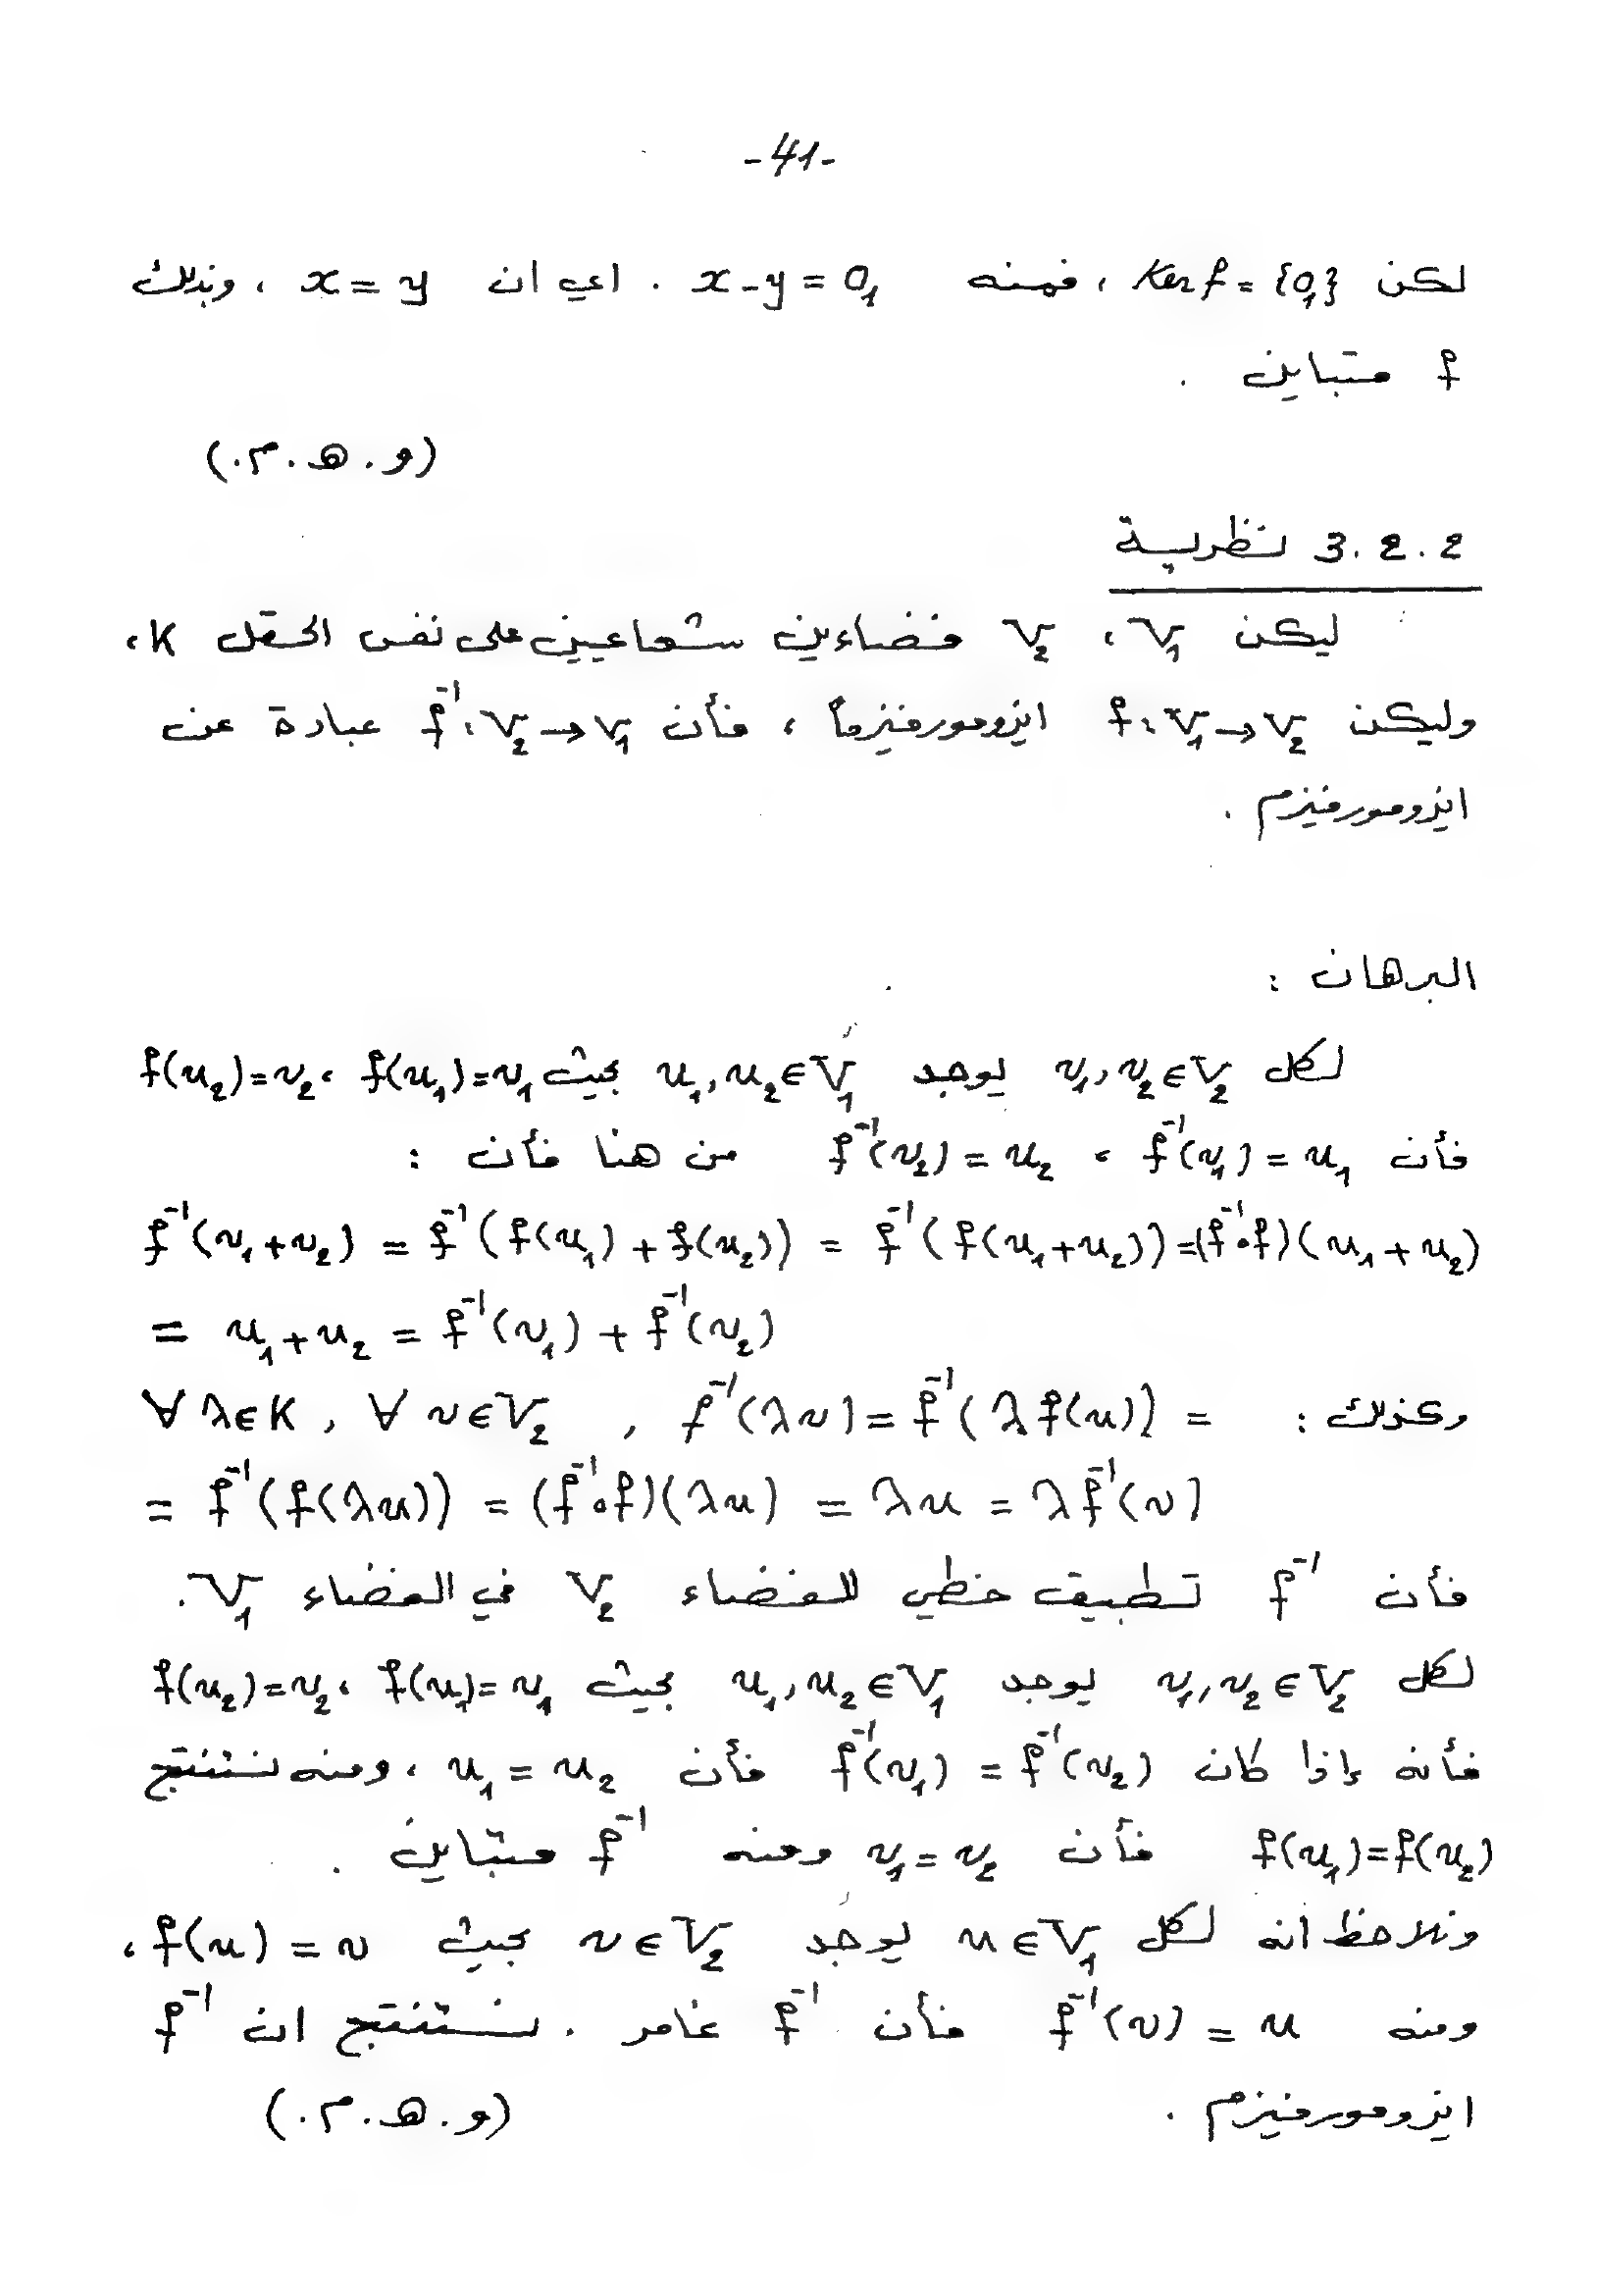 -41-
لكن Ker f = {0₁} ، فمنه x - y = 0₁ . اي ان x = y ، وبذلك
f متباين .
(و . ه . م .)
3.2.2 نظرية
ليكن V₁ ، V₂ فضاءين شعاعيين على نفس الحقل K ،
وليكن f : V₁ → V₂ ايزومورفيزماً ، فأن f⁻¹ : V₂ → V₁ عبارة عن
ايزومورفيزم .
البرهان :
لكل v₁, v₂ ∈ V₂ يوجد u₁, u₂ ∈ V₁ بحيث f(u₁) = v₁ ، f(u₂) = v₂
فأن f⁻¹(v₁) = u₁ ، f⁻¹(v₂) = u₂ من هنا فأن :
f⁻¹(v₁ + v₂) = f⁻¹(f(u₁) + f(u₂)) = f⁻¹(f(u₁ + u₂)) = (f⁻¹∘f)(u₁ + u₂)
= u₁ + u₂ = f⁻¹(v₁) + f⁻¹(v₂)
وكذلك : ∀ λ ∈ K , ∀ v ∈ V₂ , f⁻¹(λv) = f⁻¹(λ f(u)) =
= f⁻¹(f(λu)) = (f⁻¹∘f)(λu) = λu = λ f⁻¹(v)
فأن f⁻¹ تطبيق خطي للفضاء V₂ في الفضاء V₁ .
لكل v₁, v₂ ∈ V₂ يوجد u₁, u₂ ∈ V₁ بحيث f(u₁) = v₁ ، f(u₂) = v₂
فأنه إذا كان f⁻¹(v₁) = f⁻¹(v₂) فأن u₁ = u₂ ، ومنه نستنتج
f(u₁) = f(u₂) فأن v₁ = v₂ ومنه f⁻¹ متباين .
ونلاحظ انه لكل u ∈ V₁ يوجد v ∈ V₂ بحيث f(u) = v ،
ومنه f⁻¹(v) = u فأن f⁻¹ غامر . نستنتج ان f⁻¹
ايزومورفيزم . (و . ه . م .)